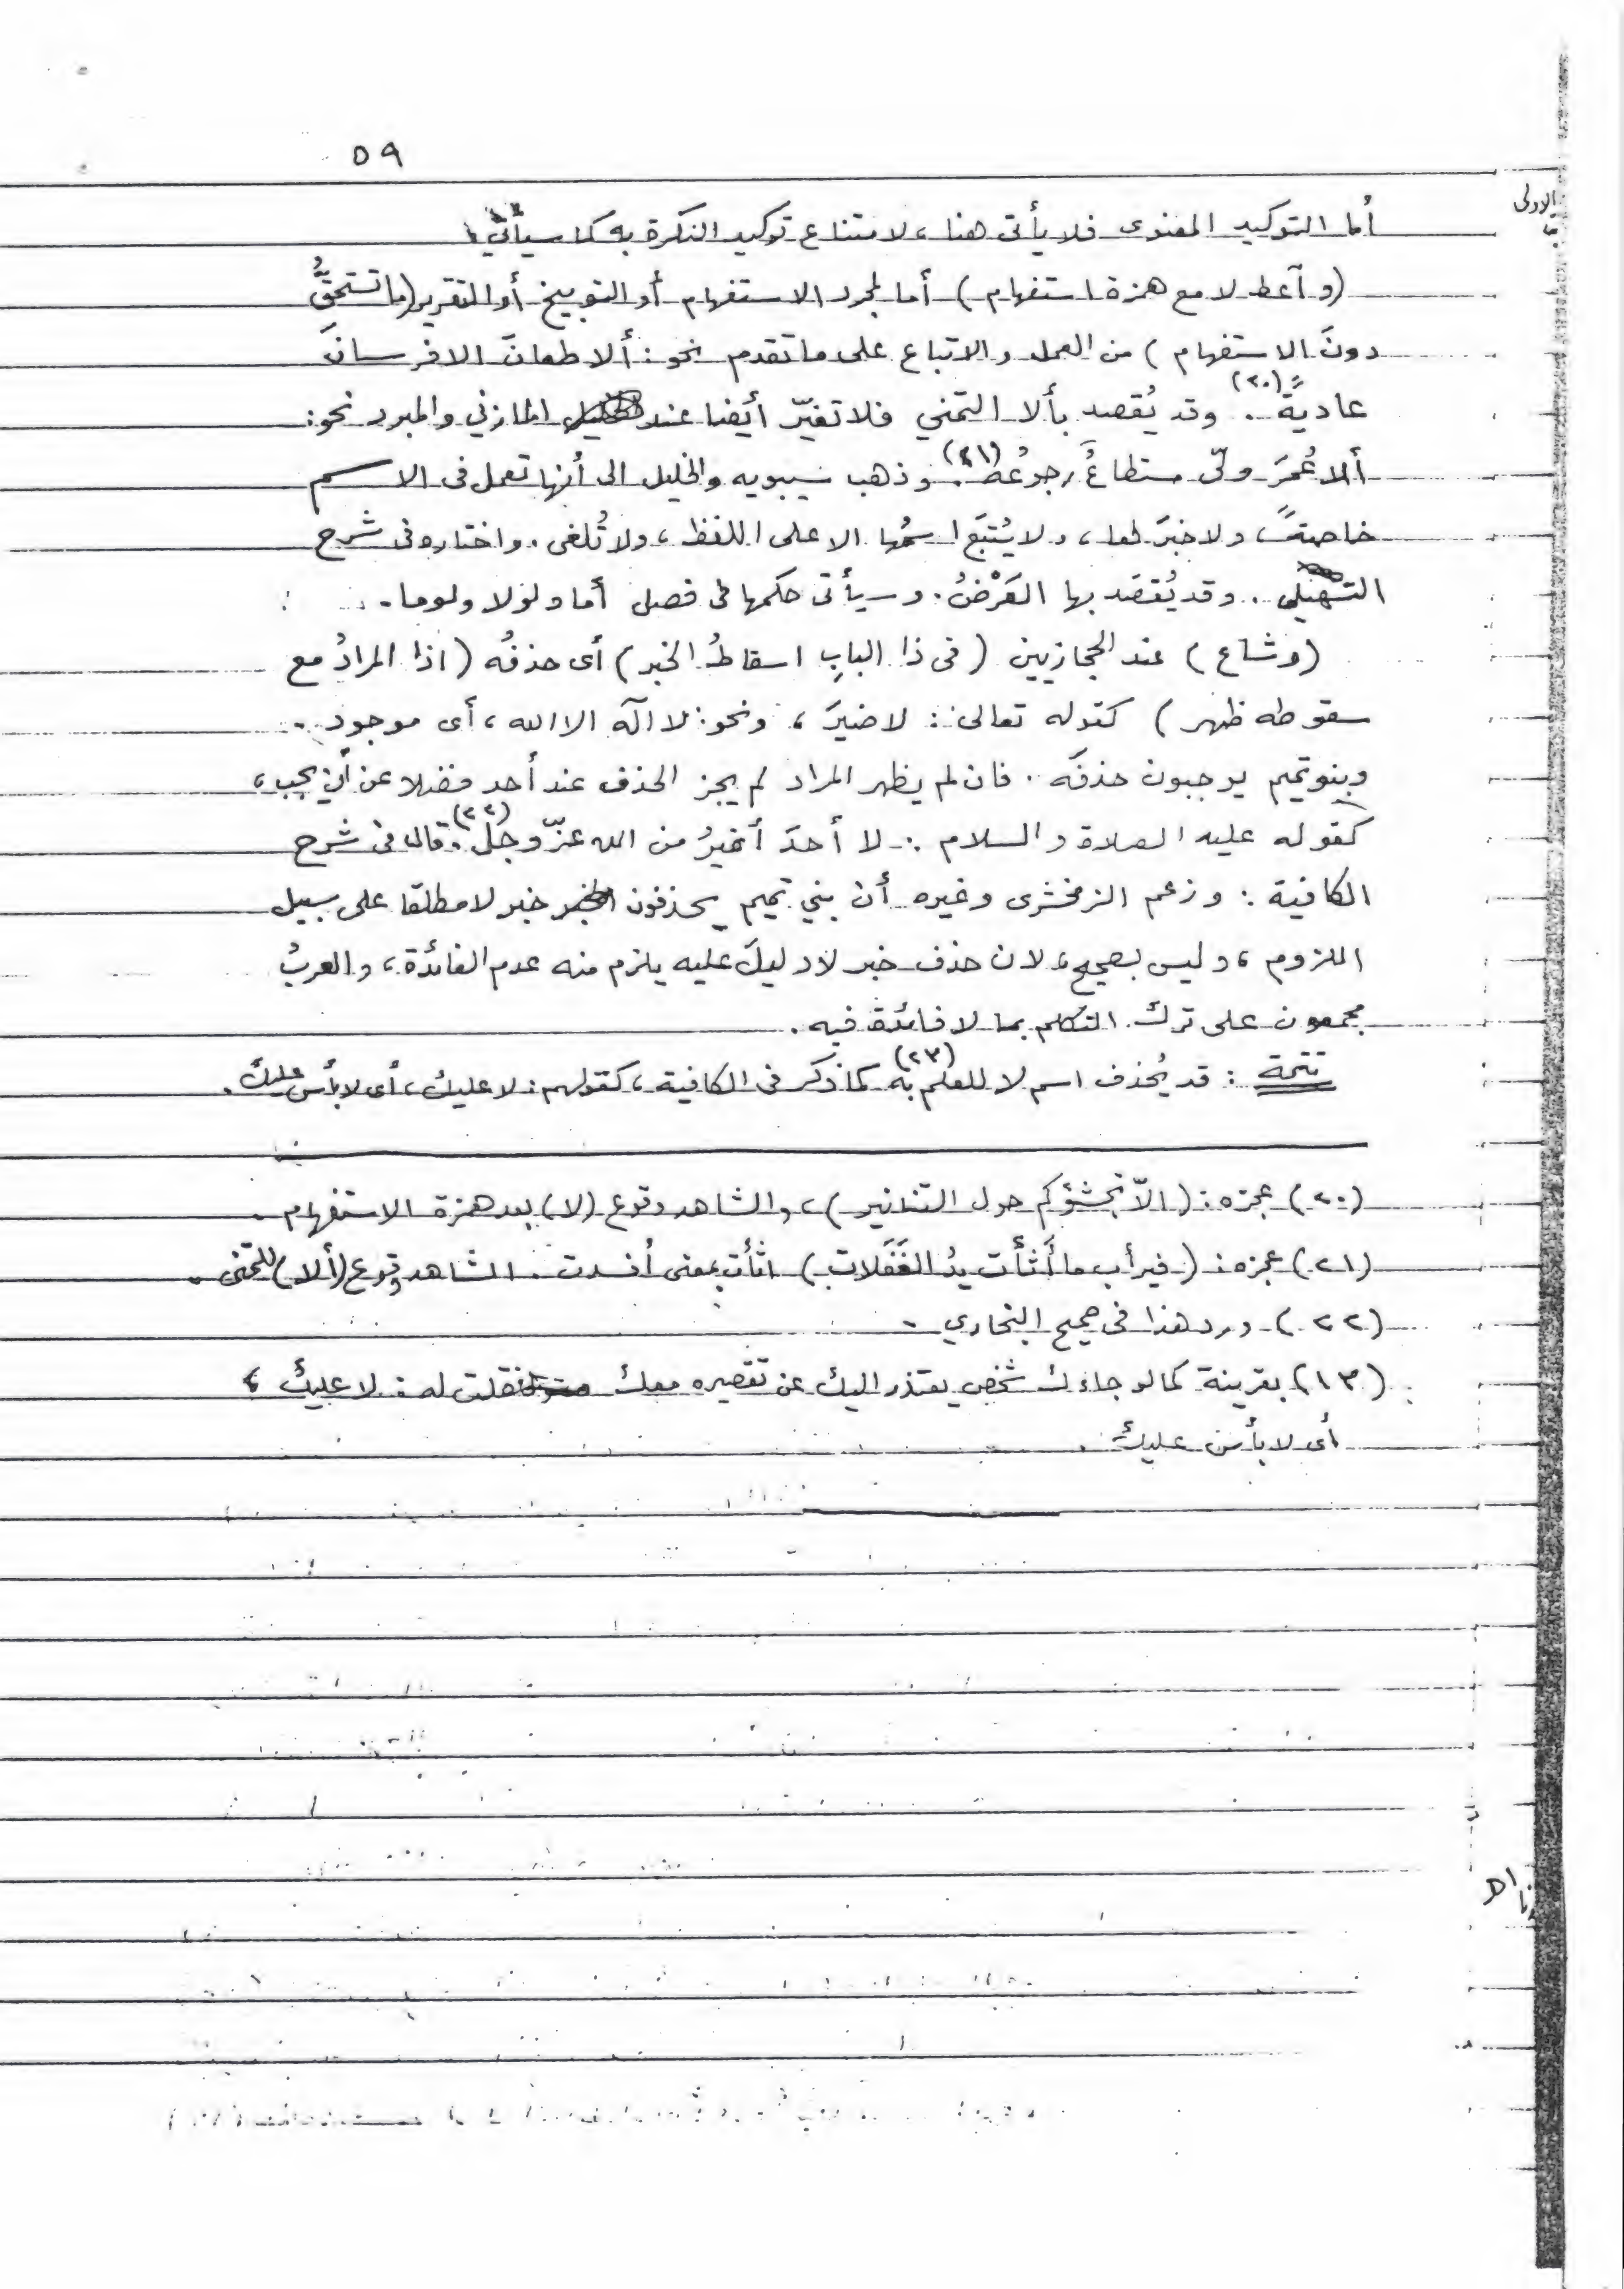 ٥٩
أما التوكيد المعنوى فلا يأتى هنا، لامتناع توكيد النكرة به كما سيأتي.
(وأعط لا مع همزة استفهام) أما لمجرد الاستفهام أو التوبيخ أو التقرير (ما تستحقُّ
دونَ الاستفهام) من العمل والاتباع على ما تقدم نحو: ألا طعانَ الا فرسانَ
عاديةً (٢٠). وقد يُقصد بألا التمني فلا تغيّر أيضا عند المازني والمبرد نحو:
ألا عُمرَ ولّى مستطاعٌ رجوعُه (٢١). وذهب سيبويه والخليل الى أنها تعمل فى الاسم
خاصةً، ولا خبرَ لها، ولا يُتبَع اسمُها الا على اللفظ، ولا تُلغى. واختاره فى شرح
التسهيل. وقد يُقصَد بها العَرْضُ. وسيأتى حكمها فى فصل أما ولولا ولوما.
(وشاع) عند الحجازيين (فى ذا البابِ اسقاطُ الخبر) أى حذفُه (اذا المرادُ مع
سقوطه ظهر) كقوله تعالى: لا ضيرَ، ونحو: لا اله الا الله، أى موجود.
وبنو تميم يوجبون حذفَه. فان لم يظهر المراد لم يجز الحذف عند أحد فضلا عن أن يجب،
كقوله عليه الصلاة والسلام: لا أحدَ أغيرُ من الله عزّ وجلّ (٢٢). قال فى شرح
الكافية: وزعم الزمخشرى وغيره أن بني تميم يحذفون خبر لا مطلقا على سبيل
اللزوم، وليس بصحيح، لان حذف خبر لا دليلَ عليه يلزم منه عدم الفائدة، والعربُ
مجمعون على ترك التكلم بما لا فائدة فيه.
تتمة: قد يُحذف اسم لا للعلم به (٢٣) كما ذكر فى الكافية، كقولهم: لا عليك، أى لا بأس عليك.
(٢٠) عجزه: (الاّ تجشؤكم حول التنانير)، والشاهد وقوع (لا) بعد همزة الاستفهام.
(٢١) عجزه: (فيرأب ما أثأت يدُ الغَفَلات) اثأت بمعنى أفسدت. الشاهد وقوع (ألا) للتمنى.
(٢٢) ورد هذا فى صحيح البخاري.
(١٣) بقرينة كما لو جاءك شخص يعتذر اليك عن تقصيره معك فقلت له: لا عليك،
أى لا بأس عليك.